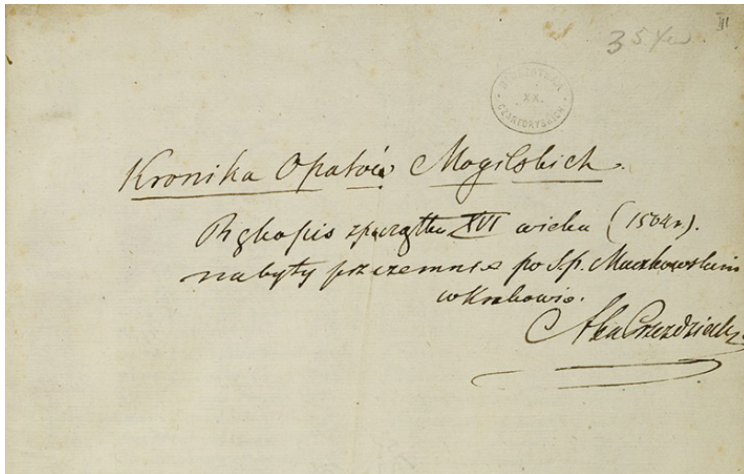 III
35 Xw.
BIBLIOTEKA
XX.
CZARTORYSKICH
Kronika Opatów Mogilskich.
Rękopis z początku XVI wieku (1504 r.).
nabyty przezemnie po Śp. Maczkowskim
w Krakowie.
Alex Przezdziecki